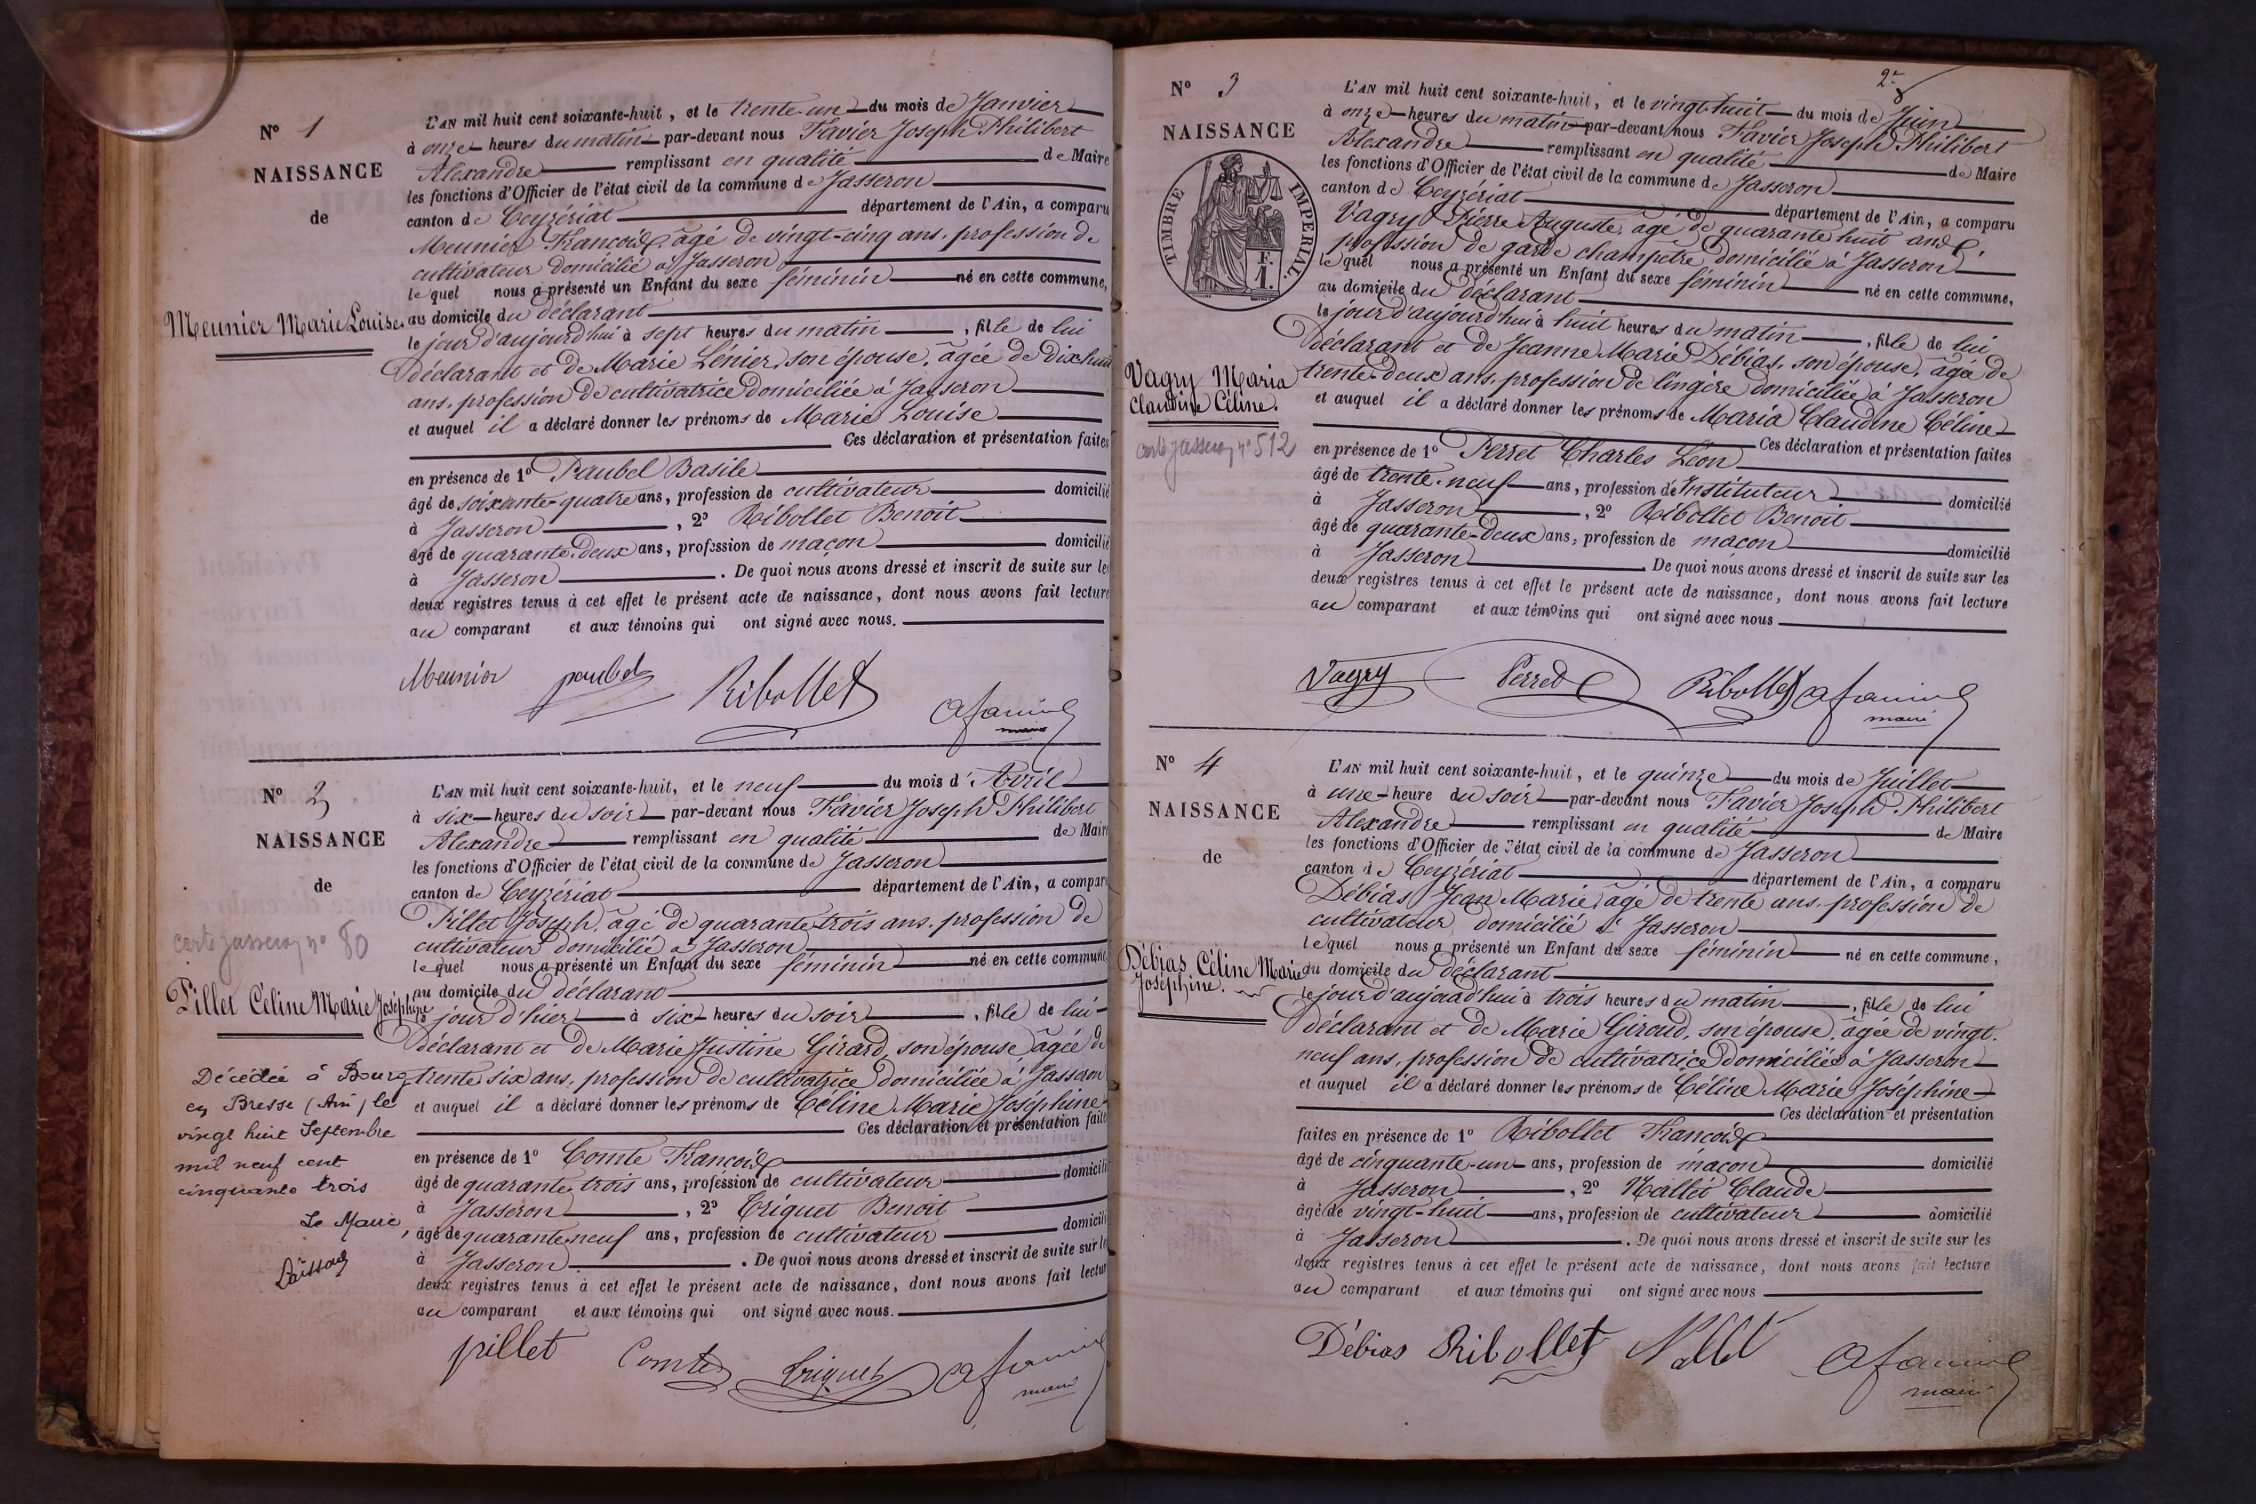 N° 1
NAISSANCE
de
Meunier Marie Louise
L'AN mil huit cent soixante-huit, et le trente-un du mois de Janvier
à onze heures du matin par-devant nous Favier Joseph Philibert
Alexandre remplissant en qualité de Maire
les fonctions d'Officier de l'état civil de la commune de Jasseron
canton de Ceyzériat département de l'Ain, a comparu
Meunier François, âgé de vingt-cinq ans, profession de
cultivateur domicilié à Jasseron
lequel nous a présenté un Enfant du sexe féminin né en cette commune,
au domicile du déclarant
le jour d'aujourd'hui à sept heures du matin, fille de lui
déclarant et de Marie Lénier, son épouse, âgée de dix-huit
ans, profession de cultivatrice domiciliée à Jasseron
et auquel il a déclaré donner les prénoms de Marie Louise
Ces déclaration et présentation faites
en présence de 1° Paubel Basile
âgé de soixante-quatre ans, profession de cultivateur domicilié
à Jasseron, 2° Ribollet Benoit
âgé de quarante-deux ans, profession de maçon domicilié
à Jasseron. De quoi nous avons dressé et inscrit de suite sur les
deux registres tenus à cet effet le présent acte de naissance, dont nous avons fait lecture
au comparant et aux témoins qui ont signé avec nous.
Meunier paubel Ribollet afavier
maire
N° 2
NAISSANCE
de
carte Jasseron n° 80
Pillet Céline Marie Joséphine
Décédée à Bourg
en Bresse (Ain) le
vingt huit Septembre
mil neuf cent
cinquante trois
Le Maire,
L'AN mil huit cent soixante-huit, et le neuf du mois d'Avril
à six heures du soir par-devant nous Favier Joseph Philibert
Alexandre remplissant en qualité de Maire
les fonctions d'Officier de l'état civil de la commune de Jasseron
canton de Ceyzériat département de l'Ain, a comparu
Pillet Joseph, âgé de quarante-trois ans, profession de
cultivateur domicilié à Jasseron
lequel nous a présenté un Enfant du sexe féminin né en cette commune
au domicile du déclarant
le jour d'hier à six heures du soir, fille de lui
déclarant et de Marie Justine Girard, son épouse âgée de
trente six ans, profession de cultivatrice domiciliée à Jasseron
et auquel il a déclaré donner les prénoms de Céline Marie Joséphine
Ces déclaration et présentation faites
en présence de 1° Comte François
âgé de quarante-trois ans, profession de cultivateur domicilié
à Jasseron, 2° Criquet Benoit
âgé de quarante-neuf ans, profession de cultivateur domicilié
à Jasseron. De quoi nous avons dressé et inscrit de suite sur les
deux registres tenus à cet effet le présent acte de naissance, dont nous avons fait lecture
au comparant et aux témoins qui ont signé avec nous.
pillet Comte Criquet afavier
maire
2
N° 3
NAISSANCE
TIMBRE IMPERIAL.
1 F.
Vagry Maria
Claudine Céline.
carte Jasseron n° 512
L'AN mil huit cent soixante-huit, et le vingt-huit du mois de Juin
à onze heures du matin par-devant nous Favier Joseph Philibert
Alexandre remplissant en qualité de Maire
les fonctions d'Officier de l'état civil de la commune de Jasseron
canton de Ceyzériat département de l'Ain, a comparu
Vagry Pierre Auguste, âgé de quarante huit ans,
profession de garde champêtre domicilié à Jasseron
lequel nous a présenté un Enfant du sexe féminin né en cette commune,
au domicile du déclarant
le jour d'aujourd'hui à huit heures du matin, fille de lui
déclarant et de Jeanne Marie Débias, son épouse, âgée de
trente-deux ans, profession de lingère domiciliée à Jasseron
et auquel il a déclaré donner les prénoms de Maria Claudine Céline
Ces déclaration et présentation faites
en présence de 1° Perret Charles Léon
âgé de trente-neuf ans, profession d'Instituteur domicilié
à Jasseron, 2° Ribollet Benoit
âgé de quarante-deux ans, profession de maçon domicilié
à Jasseron. De quoi nous avons dressé et inscrit de suite sur les
deux registres tenus à cet effet le présent acte de naissance, dont nous avons fait lecture
au comparant et aux témoins qui ont signé avec nous
Vagry Perret Ribollet afavier
maire
N° 4
NAISSANCE
de
Débias Céline Marie
Joséphine.
L'AN mil huit cent soixante-huit, et le quinze du mois de Juillet
à une heure du soir par-devant nous Favier Joseph Philibert
Alexandre remplissant en qualité de Maire
les fonctions d'Officier de l'état civil de la commune de Jasseron
canton de Ceyzériat département de l'Ain, a comparu
Débias Jean Marie, âgé de trente ans, profession de
cultivateur domicilié à Jasseron
lequel nous a présenté un Enfant du sexe féminin né en cette commune,
au domicile du déclarant
le jour d'aujourd'hui à trois heures du matin, fille de lui
déclarant et de Marie Giroud, son épouse, âgée de vingt-
neuf ans, profession de cultivatrice domiciliée à Jasseron
et auquel il a déclaré donner les prénoms de Céline Marie Joséphine
Ces déclaration et présentation
faites en présence de 1° Ribollet François
âgé de cinquante-un ans, profession de maçon domicilié
à Jasseron, 2° Nallet Claude
âgé de vingt-huit ans, profession de cultivateur domicilié
à Jasseron. De quoi nous avons dressé et inscrit de suite sur les
deux registres tenus à cet effet le présent acte de naissance, dont nous avons fait lecture
au comparant et aux témoins qui ont signé avec nous
Débias Ribollet Nallet afavier
maire